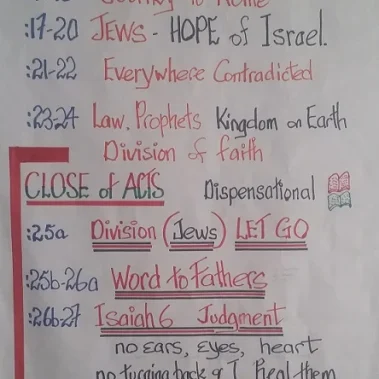 Journey to Rome
:17-20 JEWS - HOPE of Israel.
:21-22 Everywhere Contradicted
:23-24 Law, Prophets Kingdom on Earth
Division of faith
CLOSE of ACTS Dispensational
:25a Division (Jews) LET GO
:25b-26a Word to Fathers
:26b-27 Isaiah 6 Judgment
no ears, eyes, heart
no turning back & I heal them